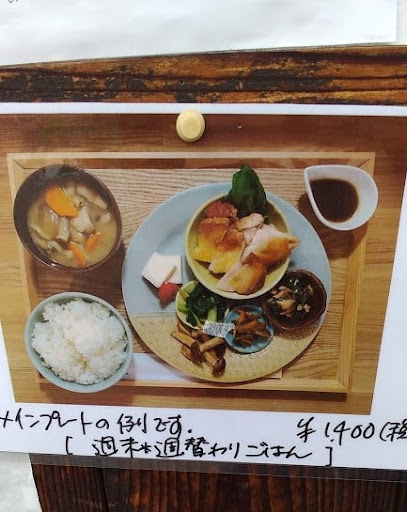 メインプレートの例です. ¥1,400(税
[ 週末*週替わりごはん ]